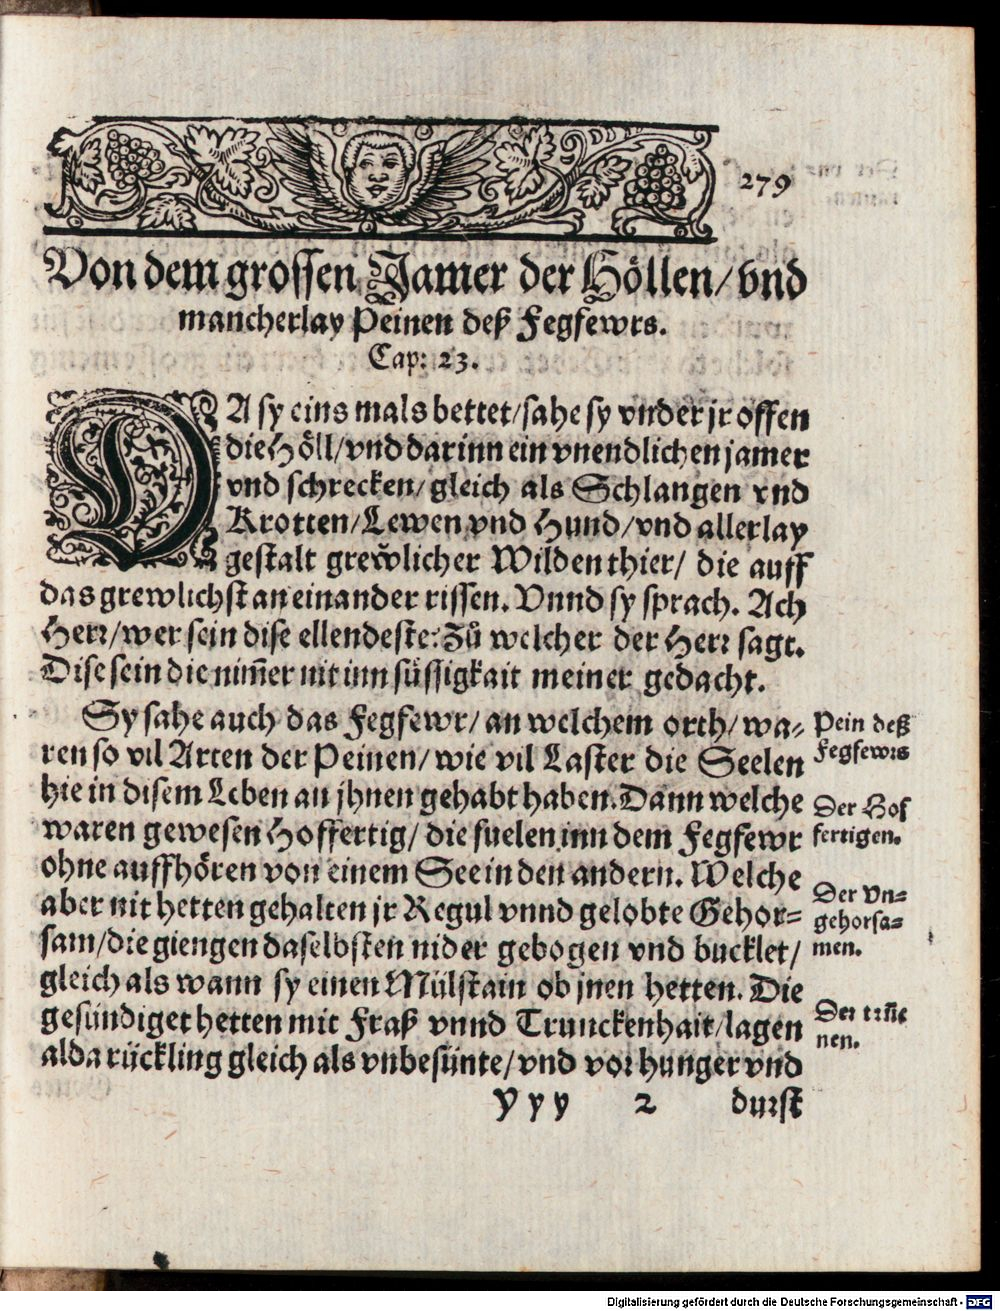 279
Von dem grossen Jamer der Höllen/ vnd
mancherlay Peinen deß Fegfewrs.
Cap: 23.
DA sy eins mals bettet/sahe sy vnder jr offen
die Höll/vnd darinn ein vnendlichen jamer
vnd schrecken/gleich als Schlangen vnd
Krotten/Lewen vnd Hund/vnd allerlay
gestalt grewlicher Wilden thier/ die auff
das grewlichst an einander rissen. Vnnd sy sprach. Ach
Herr/wer sein dise ellendeste: Zů welcher der Herr sagt.
Dise sein die nim̃er nit inn süssigkait meiner gedacht.
Sy sahe auch das Fegfewr/ an welchem orth/ wa⸗
ren so vil Arten der Peinen/ wie vil Laster die Seelen
hie in disem Leben an jhnen gehabt haben. Dann welche
waren gewesen Hoffertig/ die fuelen inn dem Fegfewr
ohne auffhören von einem See in den andern. Welche
aber nit hetten gehalten jr Regul vnnd gelobte Gehor⸗
sam/die giengen daselbsten nider gebogen vnd bucklet/
gleich als wann sy einen Mülstain ob jnen hetten. Die
gesündiget hetten mit Fraß vnnd Trunckenhait/lagen
alda rückling gleich als vnbesünte/vnd vor hunger vnd
Yyy 2 durst
Pein deß
Fegfewrs
Der Hof
fertigen.
Der Vn⸗
gehorsa⸗
men.
Der
nen.
Digitalisierung gefördert durch die Deutsche Forschungsgemeinschaft - DFG